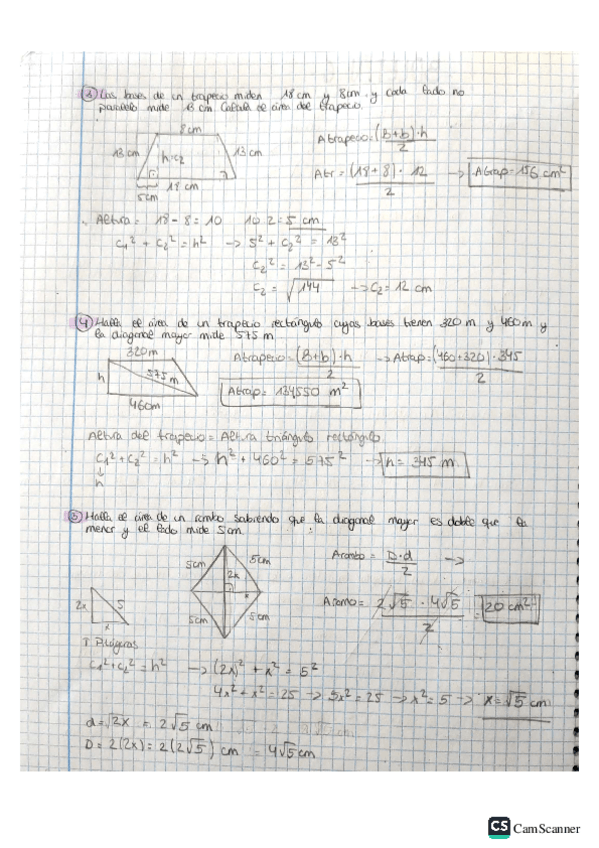 ③ Las bases de un trapecio miden 18 cm y 8cm. y cada lado no
paralelo mide 13 cm. Calcula el área del trapecio.
8cm
13 cm
h=c2
13 cm
18 cm
5cm
Atrapecio = (B+b)·h / 2
Atr = (18+8)·12 / 2 -> Atrap = 156 cm²
Altura = 18-8=10 10:2=5 cm
c1² + c2² = h² -> 5² + c2² = 13²
c2² = 13² - 5²
c2 = √144 -> c2 = 12 cm
④ Halla el área de un trapecio rectángulo cuyas bases tienen 320 m y 460 m y
la diagonal mayor mide 575 m.
320 m
h
575 m
460m
Atrapecio = (B+b)·h / 2 -> Atrap = (460+320)·345 / 2
Atrap = 134550 m²
Altura del trapecio = Altura triángulo rectángulo
c1² + c2² = h² -> h² + 460² = 575² -> h = 345 m
↓
h
⑤ Halla el área de un rombo sabiendo que la diagonal mayor es doble que la
menor y el lado mide 5cm.
5cm
5cm
2x
x
5cm
5cm
2x
5
x
Arombo = D·d / 2 ->
Aromo = 2√5 · 4√5 / 2 = 20 cm²
T Pitágoras
c1² + c2² = h² -> (2x)² + x² = 5²
4x² + x² = 25 -> 5x² = 25 -> x² = 5 -> x = √5 cm
d = √2x = 2√5 cm
D = 2(2x) = 2(2√5) cm = 4√5 cm
CS CamScanner